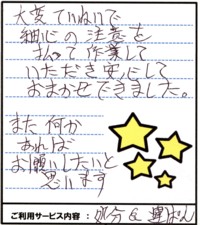 大変ていねいで
細心の注意を
払って作業して
いただき安心して
おまかせできました。
また何か
あれば
お願いしたいと
思います
ご利用サービス内容: 処分&運ぱん